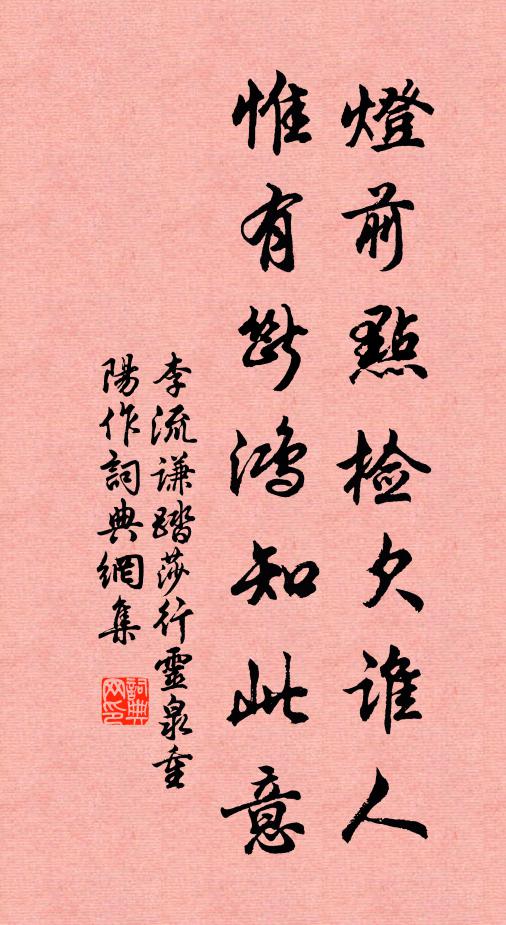 燈前點檢欠誰人
惟有斷鴻知此意
李流謙踏莎行靈泉重
陽作詞典網集
詞典
网印